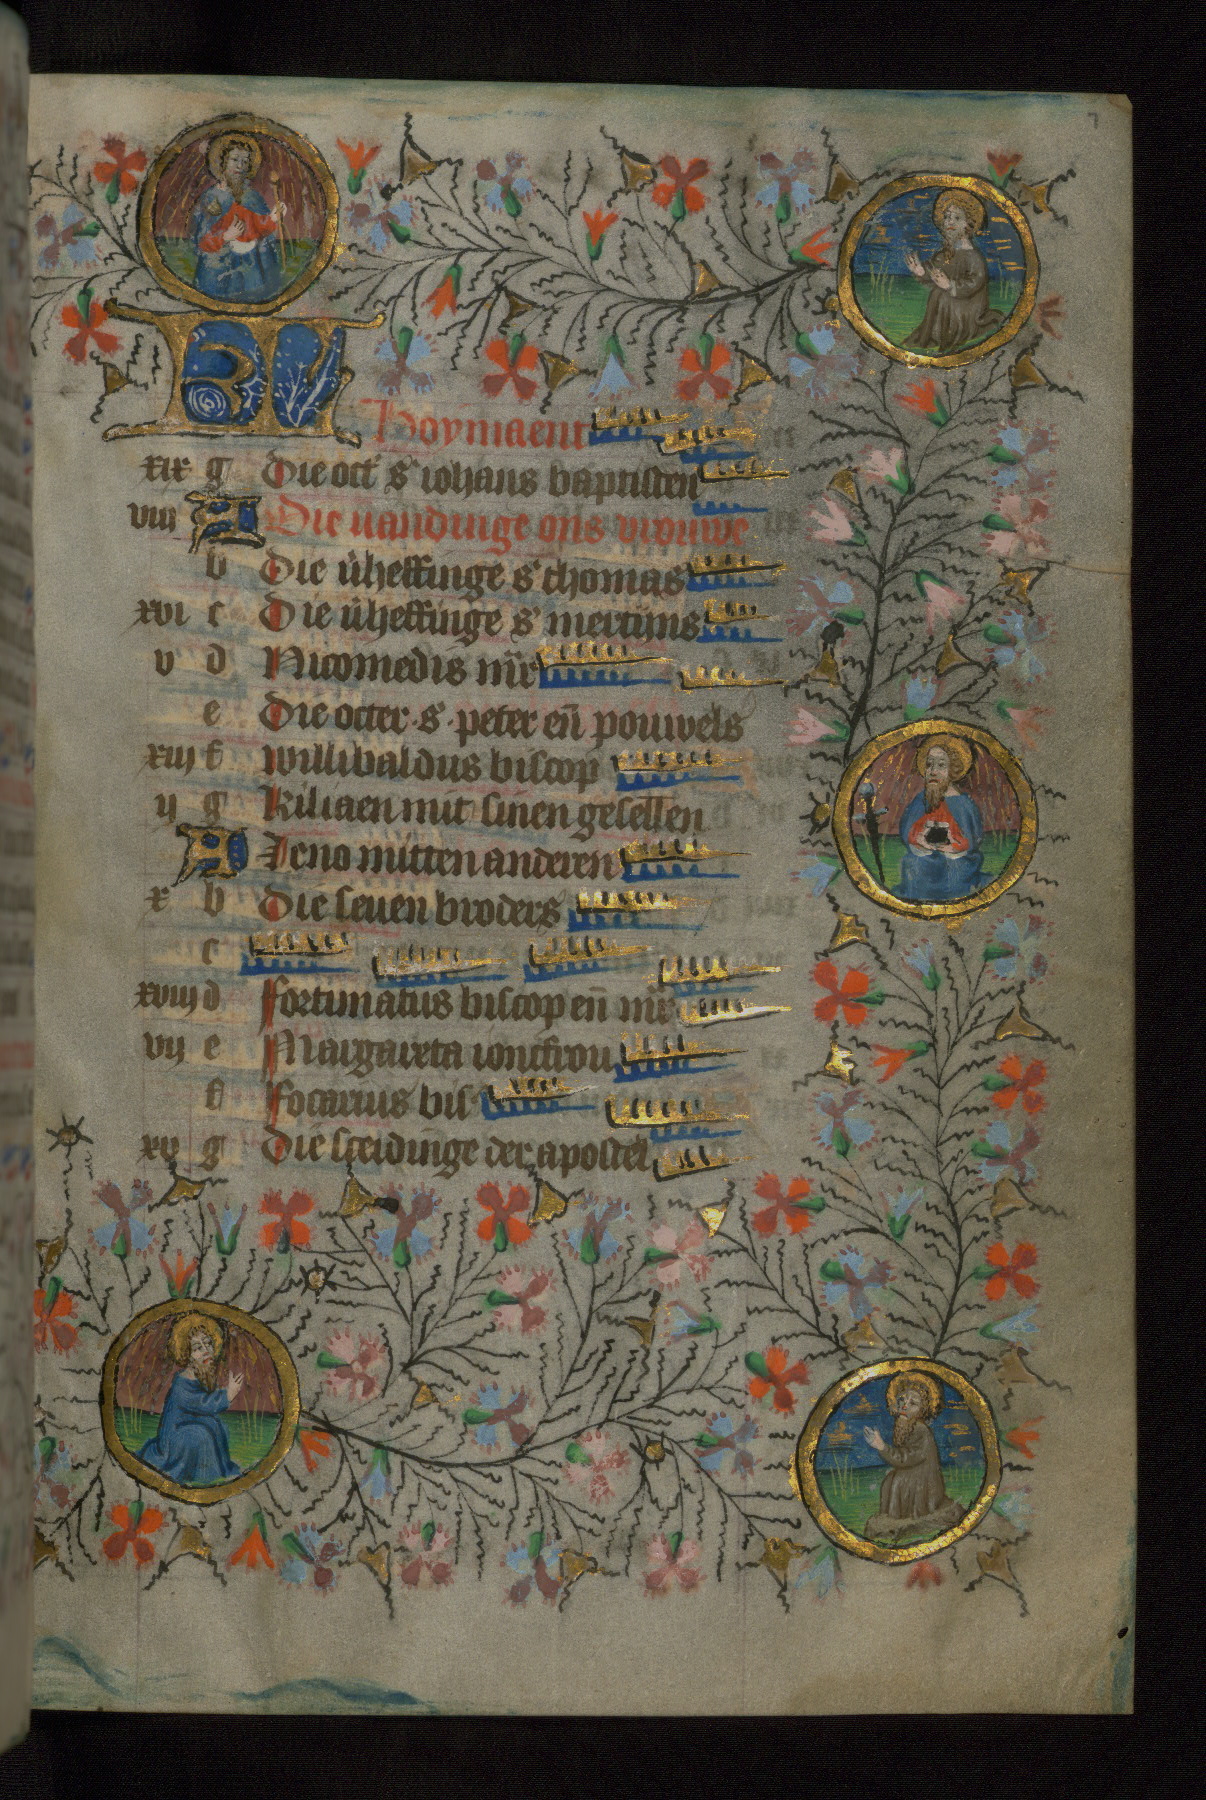 7
KL Hoymaent
xix g Die oct̄ s' iohans baptisten
viii A Die vandinge ons vrouwe
b Die v̄heffinge s' thomas
xvi c Die v̄heffinge s' mertijns
v d Nicomedis mr̄
e Die octer · s · peter en̄ pouwels
xiii f willibaldus biscop
ij g kiliaen mit sinen gesellen
A Zeno mitten anderen
x b Die seuen broders
c
xviii d fortunatus biscop en̄ mr̄
vij e Margareta ioncfrou
f focarius bis
xv g Die sceidinge der apostel